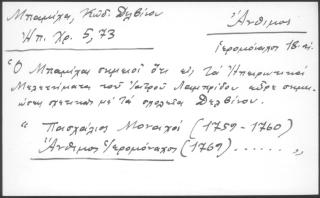 Μπαμίχα, Κώδ. Δελβίνου
Ἠπ. Χρ. 5, 73
Ἄνθιμος
Ἱερομόναχος 18 αἰ.
Ὁ Μπαμίχας σημειοῖ ὅτι εἰς τὰ Ἠπειρωτικὰ
Μελετήματα τοῦ Ἰατροῦ Λαμπρίδου εὗρε σημει-
ώσεις σχετικὰς μὲ τὰ σχολεῖα Δελβίνου.
"Πασχάλιος Μοναχοί (1759-1760)
Ἄνθιμος Ἱερομόναχος (1769) ......."